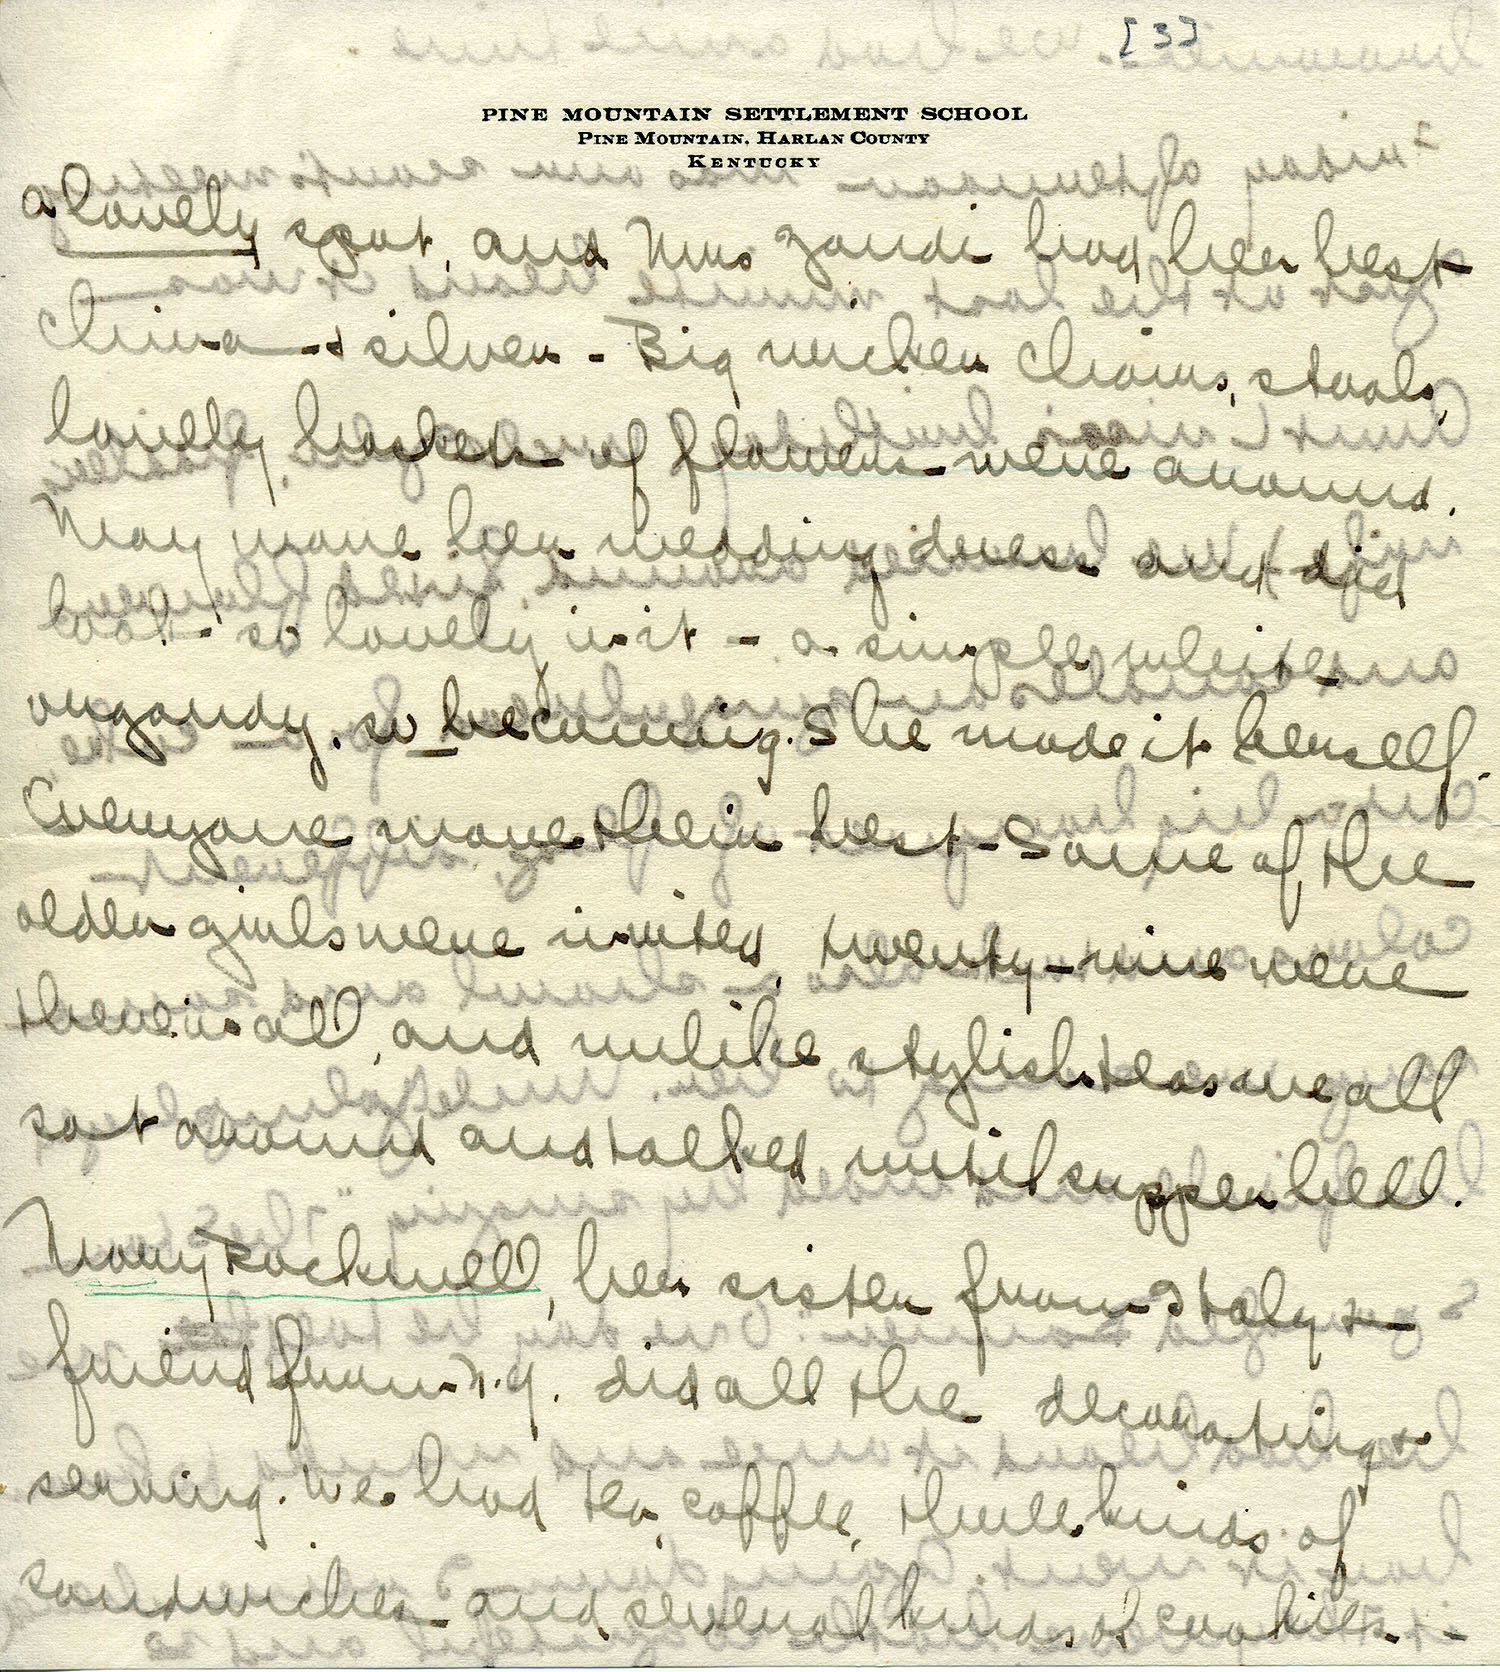 [3]
PINE MOUNTAIN SETTLEMENT SCHOOL
PINE MOUNTAIN, HARLAN COUNTY
KENTUCKY
a lovely spot, and Mrs Zande had her best
china + silver - Big wicker chairs, stools,
lovely baskets of flowers were around.
May wore her wedding dress and did
look so lovely in it - a simple white
organdy, so becoming. She made it herself.
Everyone wore their best - Some of the
older girls were invited, twenty-nine were
there in all, and unlike stylish teas we all
sat around and talked until supper bell.
Mary Rockwell, her sister from Italy +
friend from N.Y. did all the decorating +
serving. We had tea, coffee, three kinds of
sandwiches and several kinds of cookies -